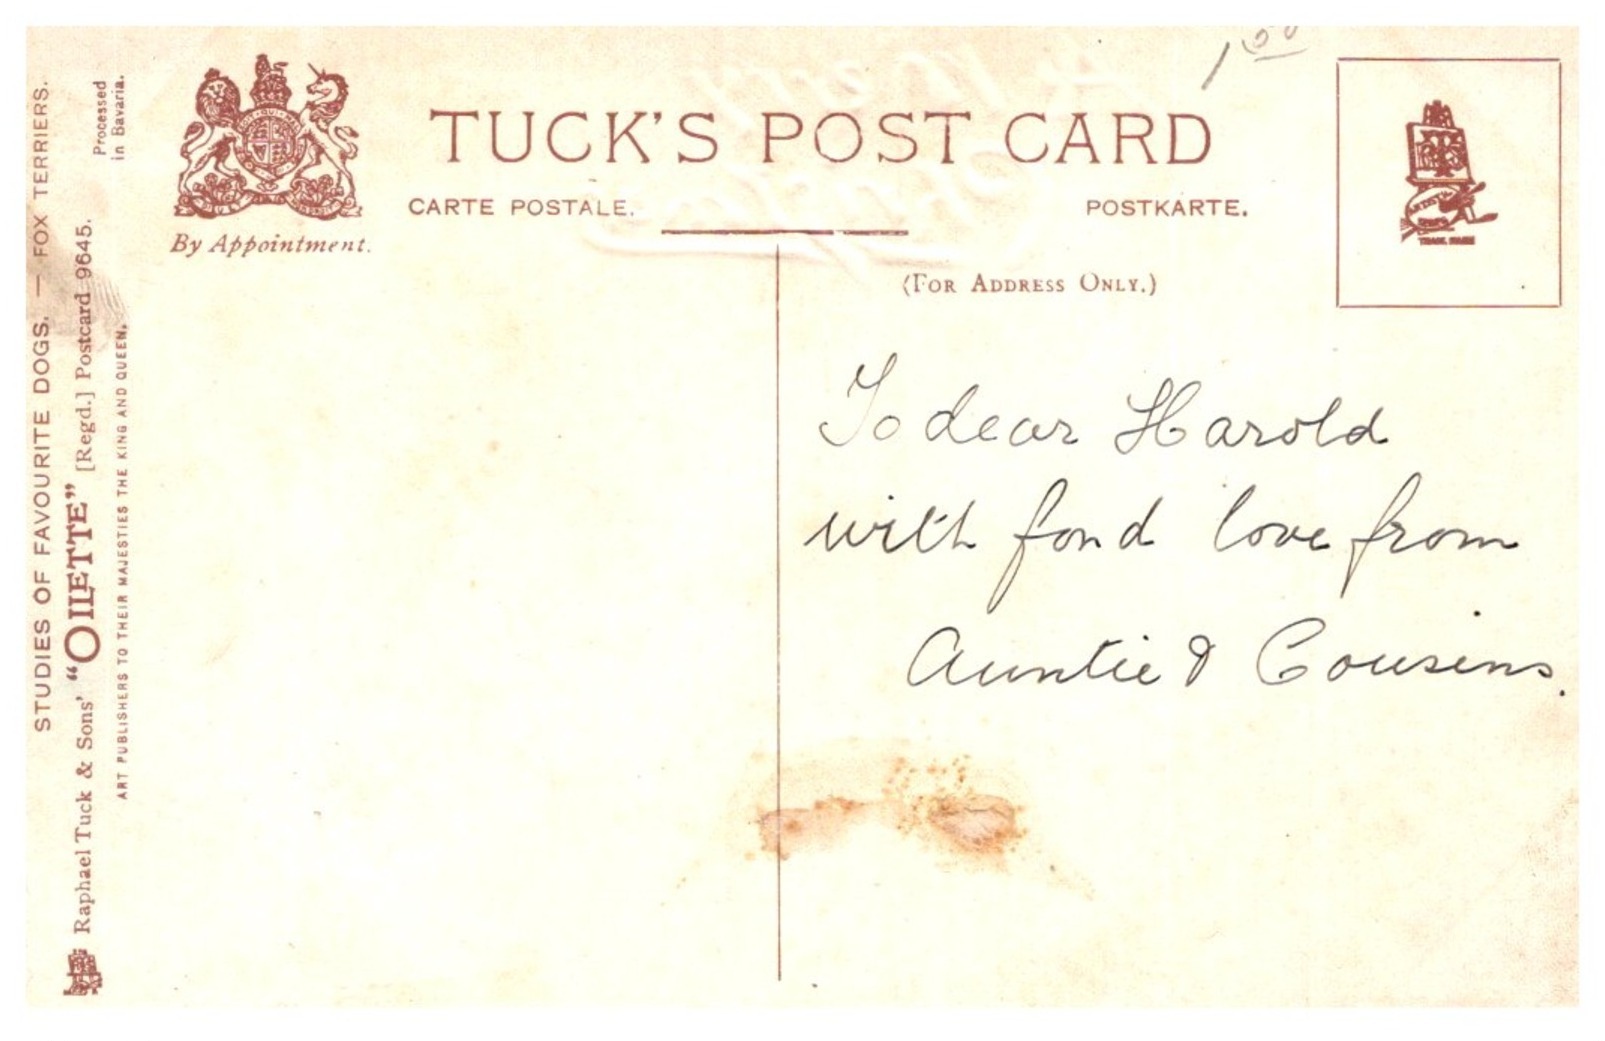 1 00
TUCK'S POST CARD
CARTE POSTALE.
POSTKARTE.
By Appointment.
(FOR ADDRESS ONLY.)
TRADE MARK
To dear Harold
with fond love from
Auntie & Cousins.
STUDIES OF FAVOURITE DOGS. — FOX TERRIERS.
Raphael Tuck & Sons' "OILETTE" [Regd.] Postcard 9645.
ART PUBLISHERS TO THEIR MAJESTIES THE KING AND QUEEN.
Processed
in Bavaria.